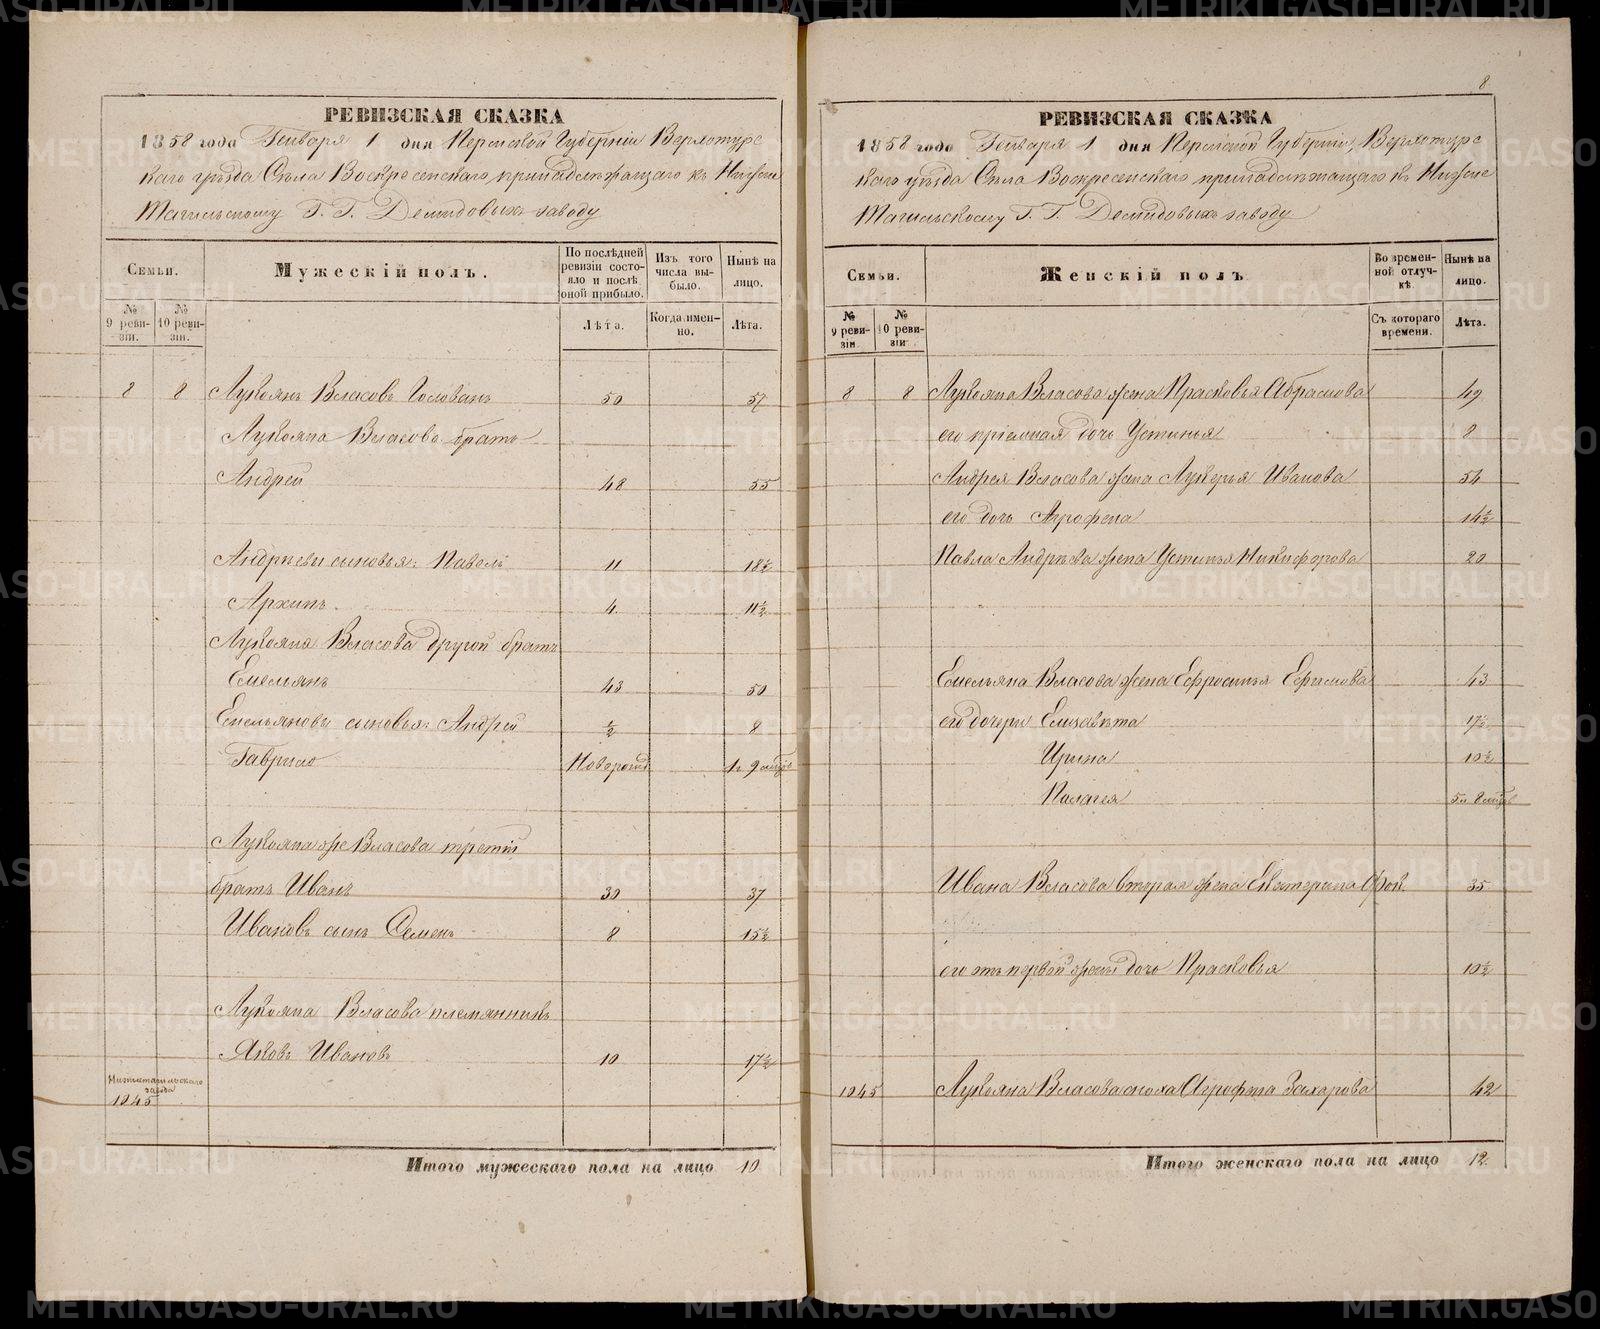 8
РЕВИЗСКАЯ СКАЗКА
1858 года Генваря 1 дня Пермской Губерніи Верхотурс
каго уѣзда Села Воскресенскаго принадлѣжащаго къ Нижне
Тагильскому Г. Г. Демидовыхъ заводу
Семьи.
Мужескій полъ.
По послѣдней ревизіи состояло и послѣ оной прибыло.
Изъ того числа выбыло.
Нынѣ на лицо.
№ 9 ревизіи.
№ 10 ревизіи.
Лѣта.
Когда именно.
Лѣта.
8 8 Лукоянъ Власовъ Голованъ 50 57
Лукояна Власова братъ
Андрей 48 55
Андрѣевы сыновья: Павелъ 11 18½
Архипъ 4. 11½
Лукояна Власова другой братъ
Емельянъ 43 50
Емельяновы сыновья: Андрей ½ 8
Гаврило Новорожд. 1 г. 9 мѣц.
Лукояна же Власова третій
братъ Иванъ 30 37
Ивановъ сынъ Семенъ 8 15½
Лукояна Власова племянникъ
Яковъ Ивановъ 10 17½
Нижнетагильскаго завода
1045
Итого мужескаго пола на лицо 10
РЕВИЗСКАЯ СКАЗКА
1858 года Генваря 1 дня Пермской Губерніи, Верхотурс
каго уѣзда Села Воскресенскаго принадлѣжащаго къ Нижне
Тагильскому Г. Г. Демидовыхъ заводу
Семьи.
Женскій полъ
Во временной отлучкѣ.
Нынѣ на лицо.
№ 9 ревизіи
№ 10 ревизіи
Съ котораго времени.
Лѣта.
8 8 Лукояна Власова жена Прасковья Абрамова 49
его пріемная дочь Устинья 8
Андрея Власова жена Лукерья Иванова 54
его дочь Агрофена 14½
Павла Андрѣева жена Устинья Никифорова 20
Емельяна Власова жена Ефросинья Ефимова 43
его дочери Елизавѣта 17½
Ирина 10½
Палагея 5 л. 8 мѣц.
Ивана Власова вторая жена Екатерина Фок. 35
его отъ первой жены дочь Прасковья 10½
1045 Лукояна Власова сноха Агрофена Захарова 42
Итого женскаго пола на лицо 12.
METRIKI.GASO-URAL.RU